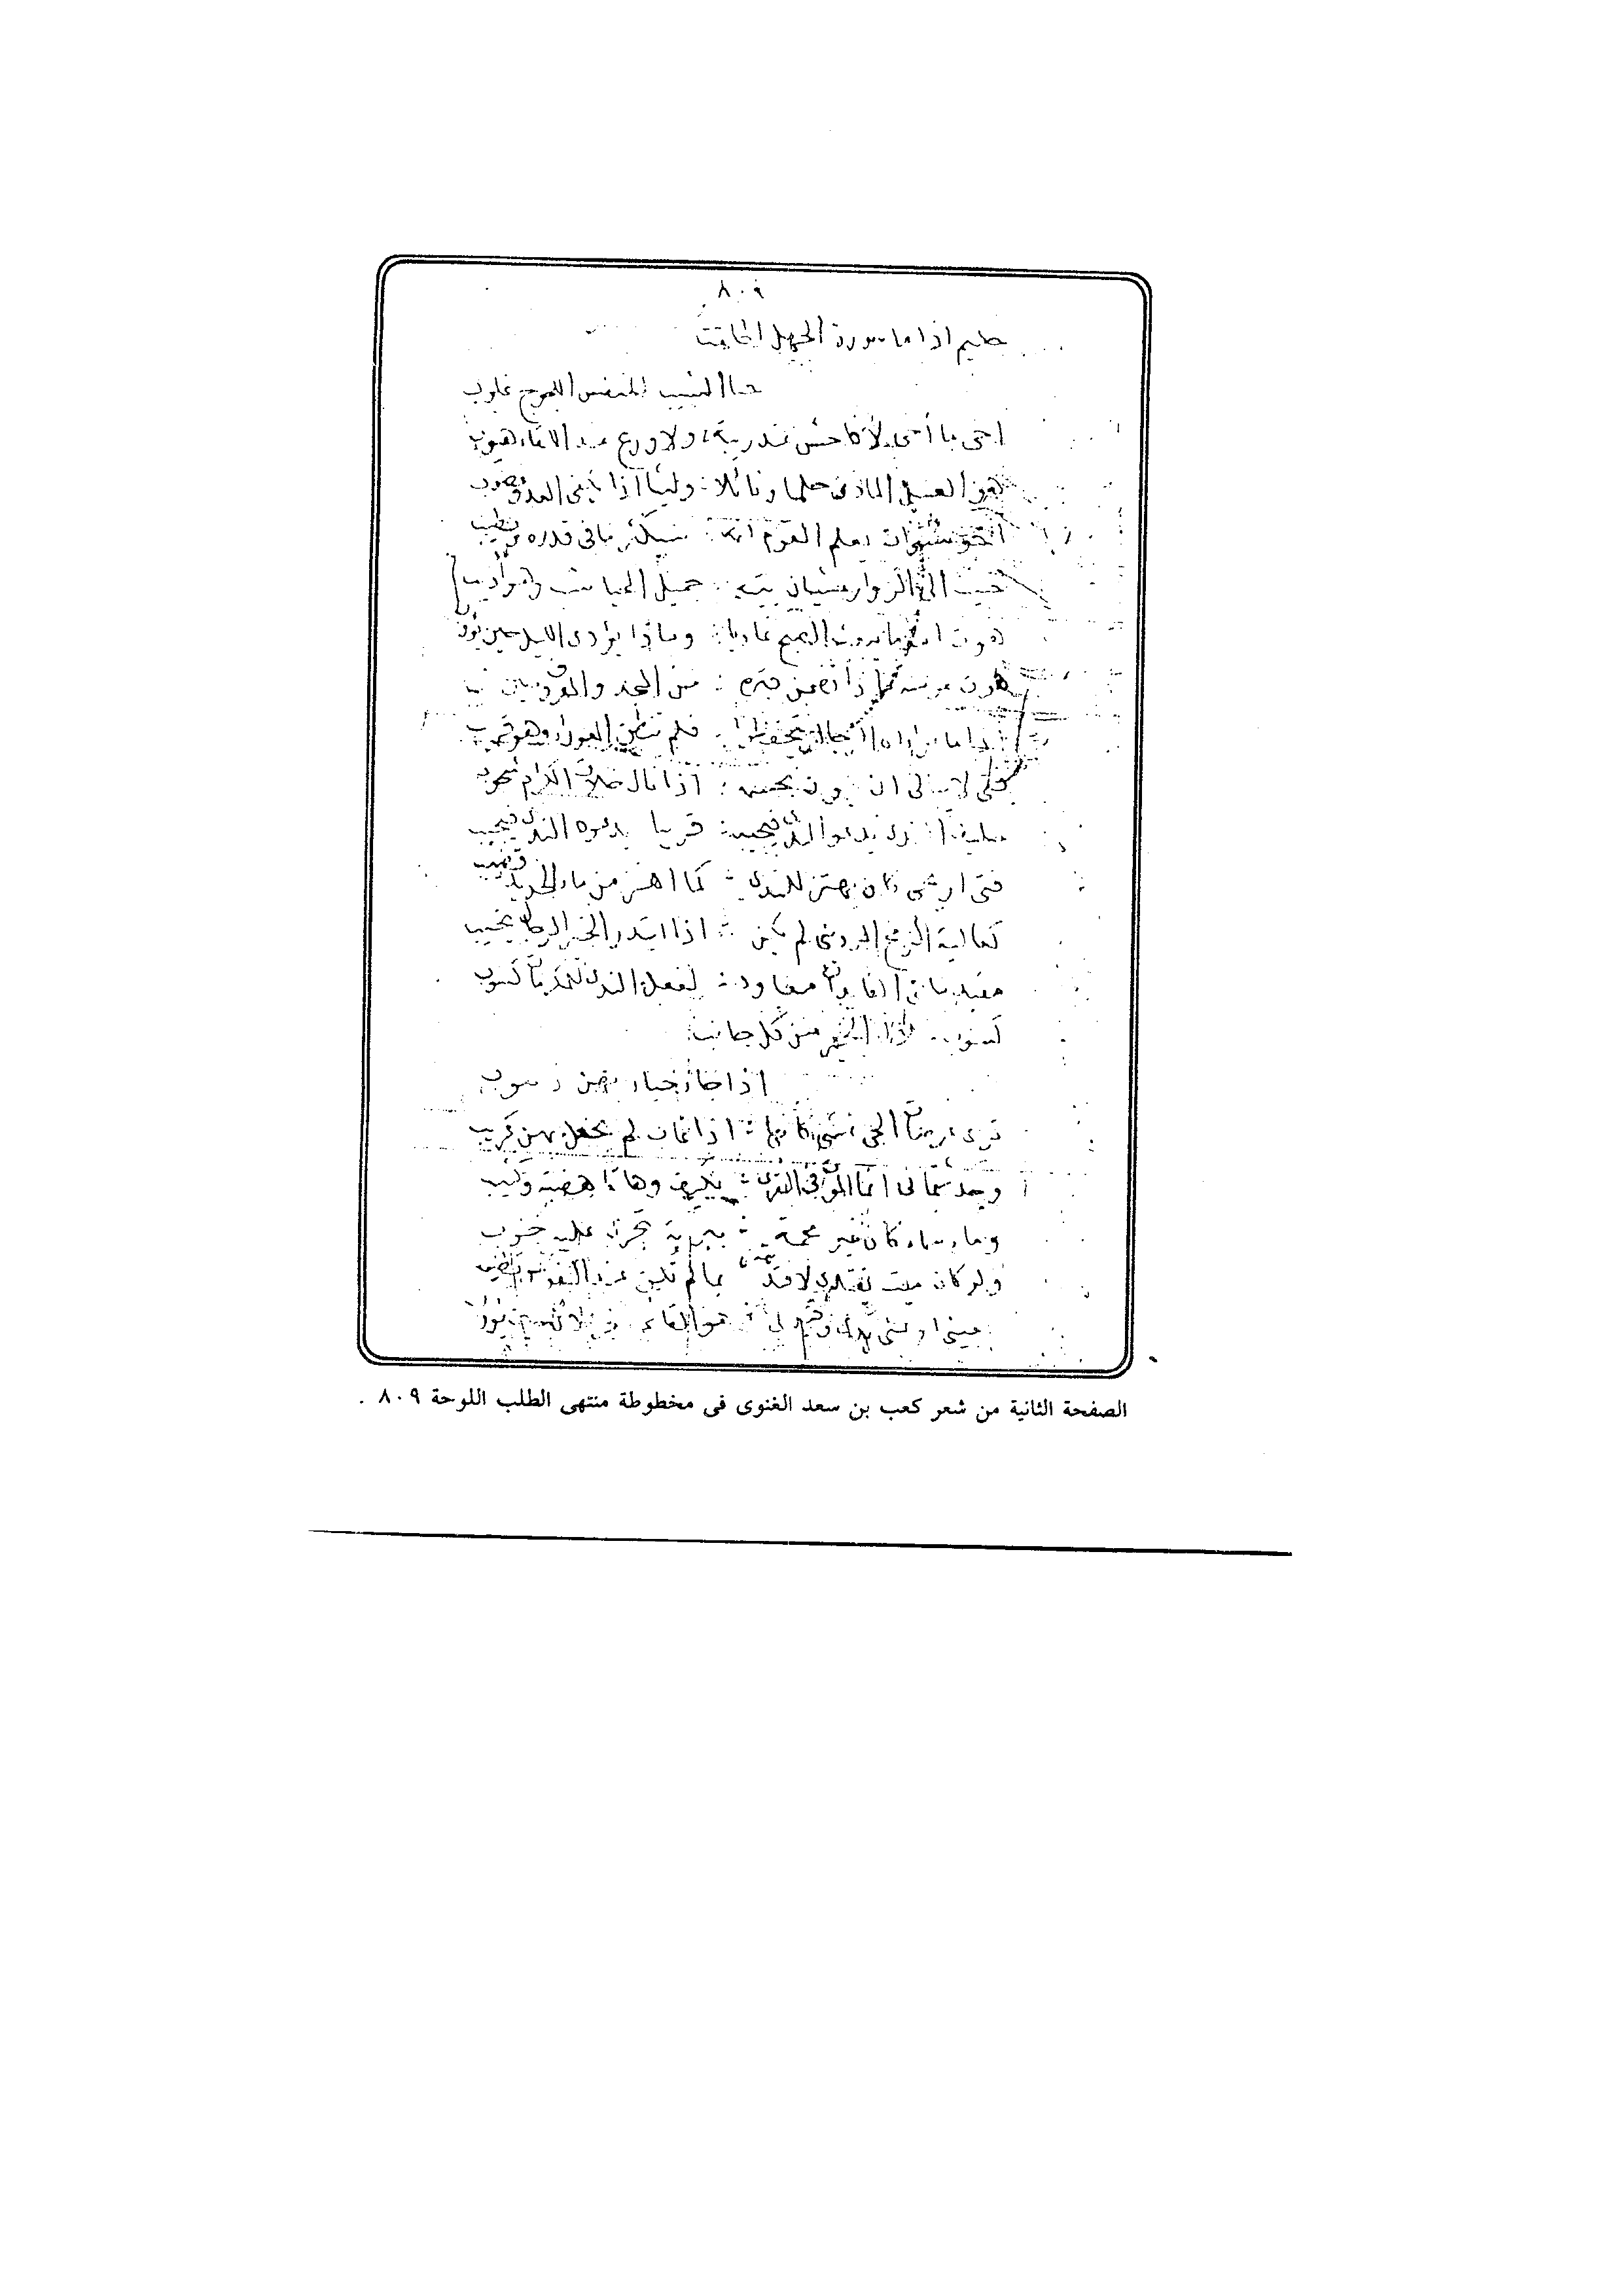 ٨٠٩
حليم اذا ما سورة الجهل اطلقت
حبا الشيب للنفس اللجوج غلوب
اخى ما أخى لا فاحش عند ريبة ولا ورع عند اللقاء هيوب
هو العسل الماذى حلما ونائلا وليثا اذا يلقى العدو غضوب
أخو شتوات يعلم القوم انه سيكثر ما فى قدره ويطيب
حبيب الى الزوار غشيان بيته جميل المحيا شب وهو أديب
هوت امه ما يبعث الصبح غاديا وماذا يؤدى الليل حين يؤوب
هوت عرسه ماذا تضمن قبره من المجد والمعروف حين
اذا ما تراآه الرجال تحفظوا فلم تنطق العوراء وهو قريب
فتى لا يبالى ان يكون بجسمه اذا نال خلات الكرام شحوب
حليف الندى يدعو الندى فيجيبه قريبا ويدعوه الندى فيجيب
فتى اريحى كان يهتز للندى كما اهتز من ماء الحديد قضيب
كعالية الرمح الردينى لم يكن اذا ابتدر الخير الرجال يخيب
مفيد معاود لفعل الندى كسوب
الخير من كل جانب
اذا جاء جياء بهن ذهوب
ترى عرصات الحى تمسى كأنها اذا غاب لم يحلل بهن عريب
وحدثتمانى انما الموت فى القرى فكيف وهاتا هضبة وكثيب
وماء سماء كان غير محمة ببرية تجرى عليه جنوب
ولو كان ميت يفتدى لافتديته بما لم تكن عنه النفوس تطيب
بعينى او يمنى يدى وقيل لى هو الغانم الجذلان يوم يؤوب
الصفحة الثانية من شعر كعب بن سعد الغنوى فى مخطوطة منتهى الطلب اللوحة ٨٠٩ .